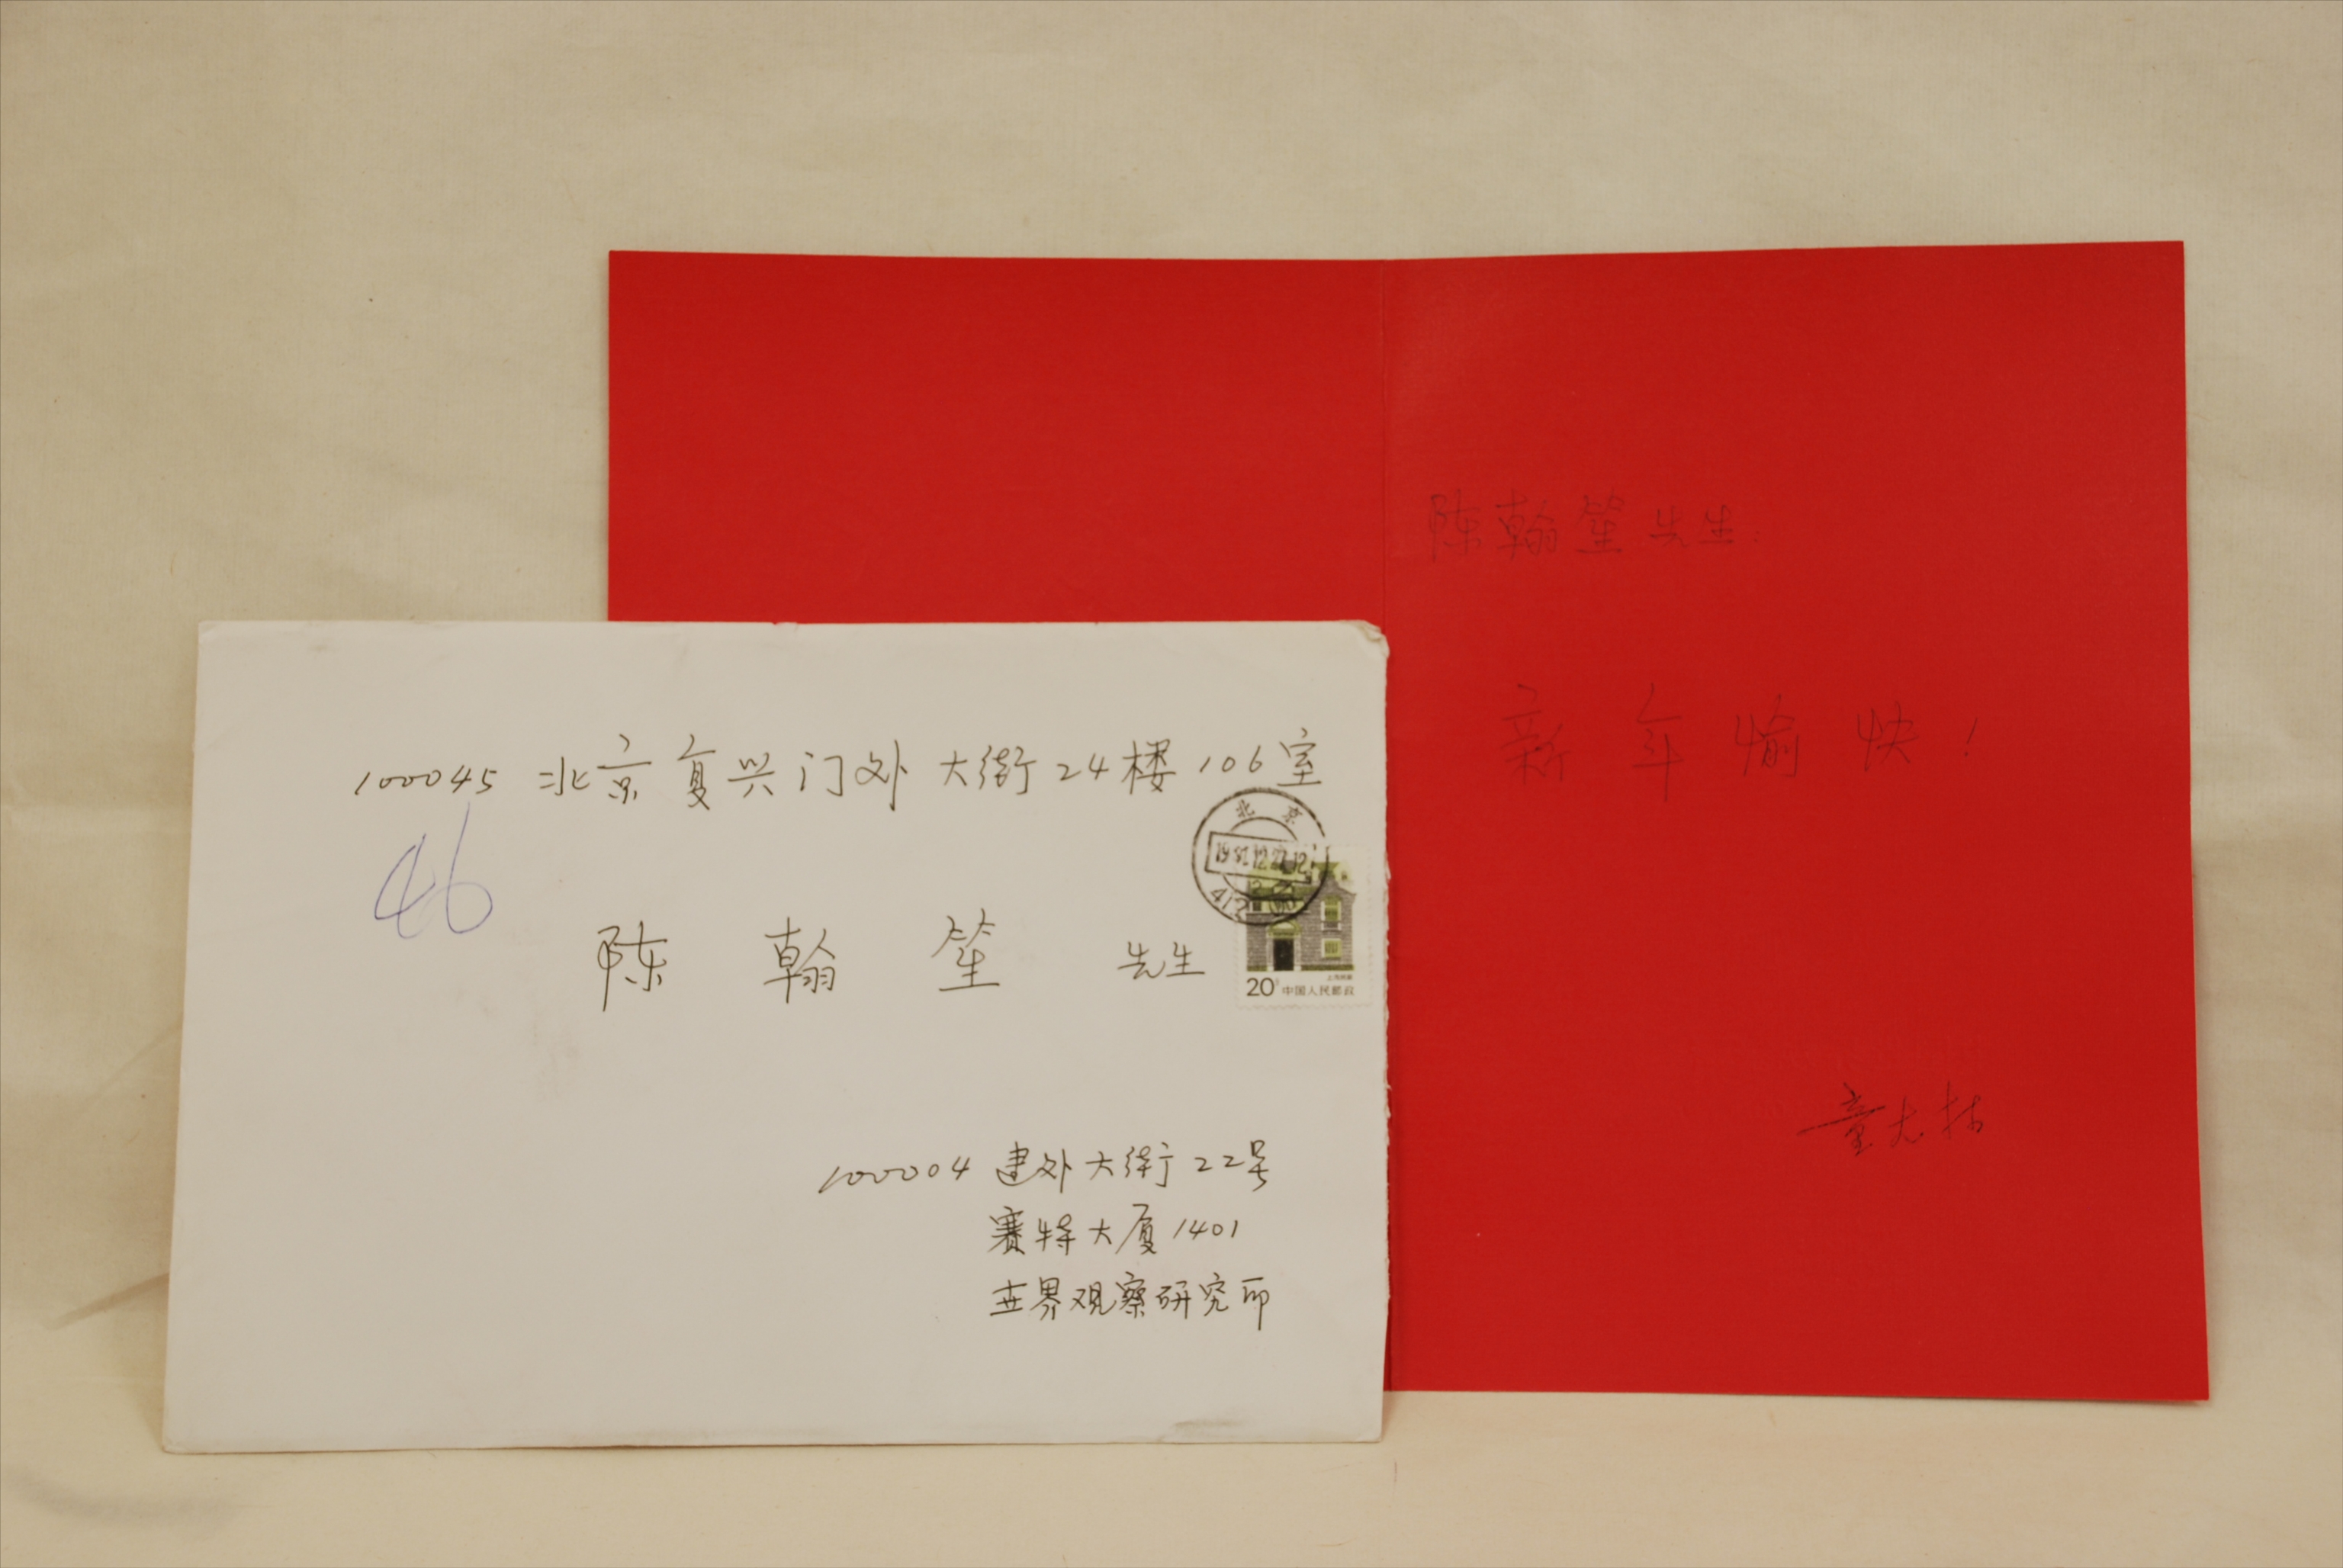 陈翰笙先生:
新年愉快!
100045 北京复兴门外大街24楼106室
46
陈翰笙 先生
北京
20 中国人民邮政
上海民居
100004 建外大街22号
赛特大厦1401
世界观察研究所